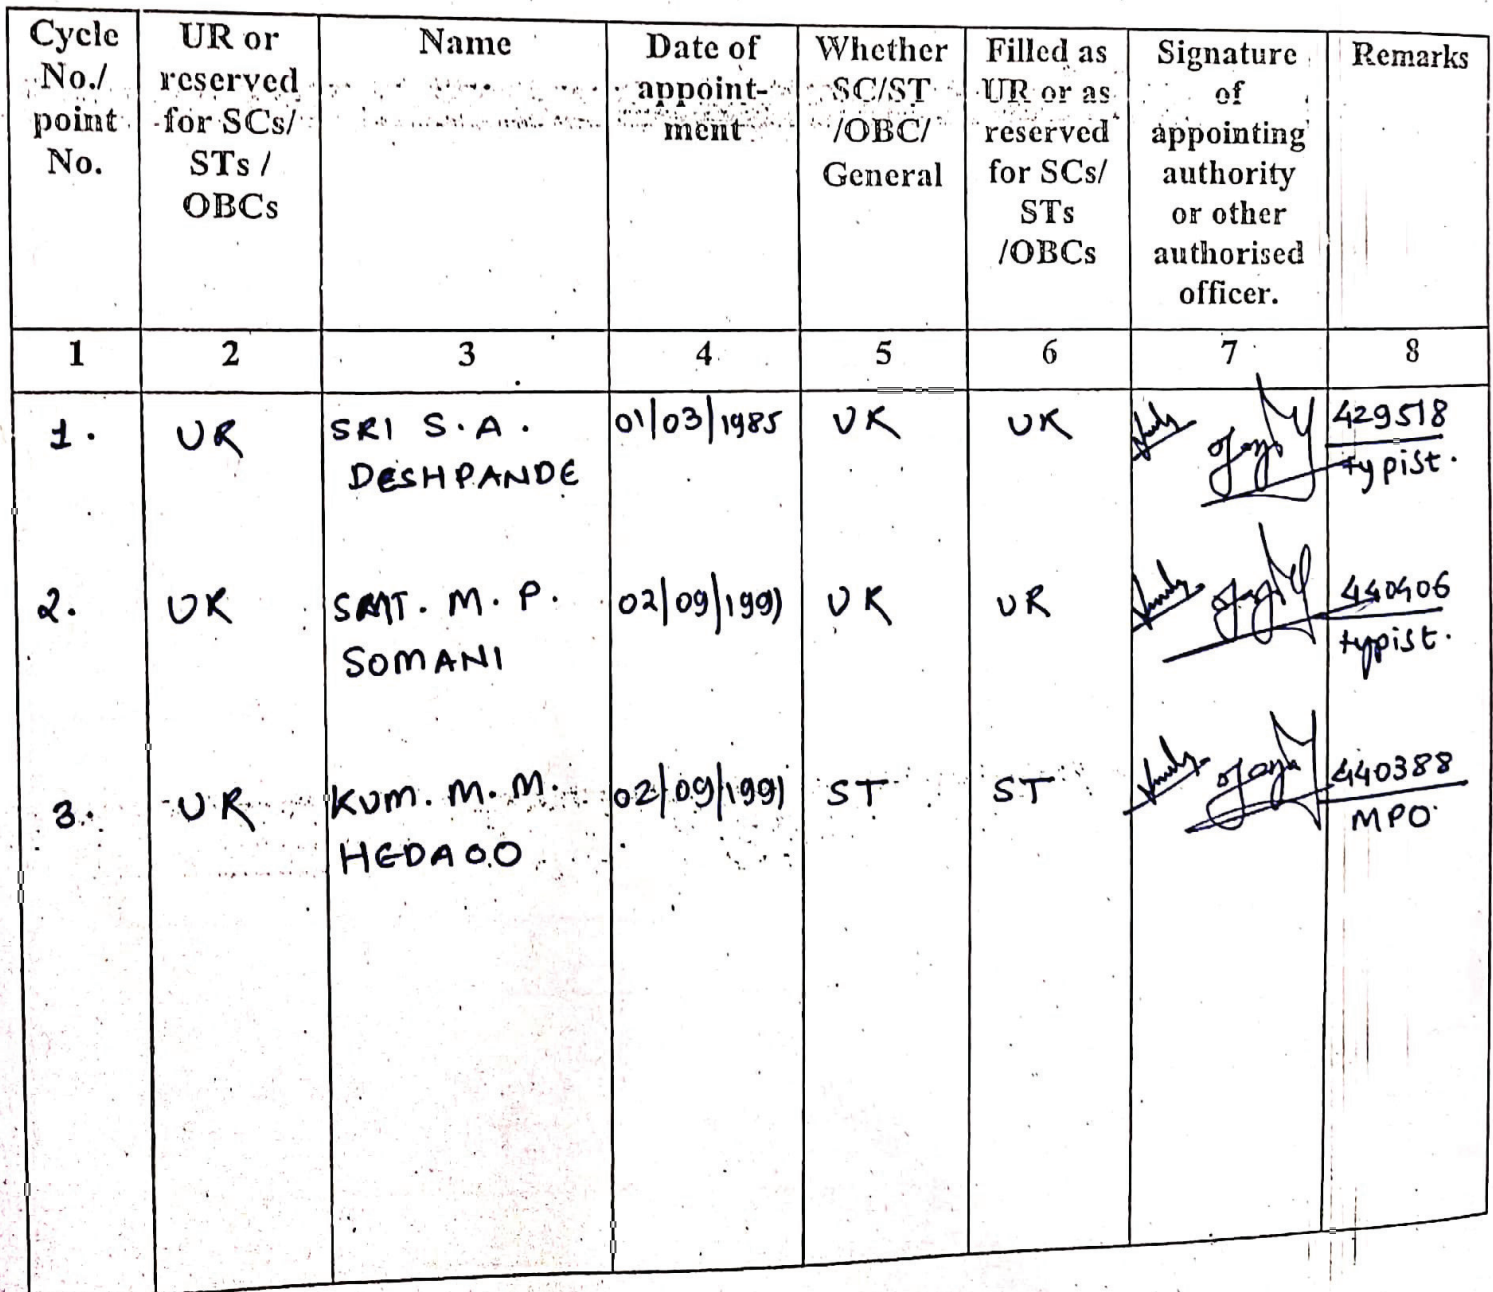 Cycle No./ point No.
UR or reserved for SCs/ STs / OBCs
Name
Date of appoint-ment
Whether SC/ST /OBC/ General
Filled as UR or as reserved for SCs/ STs /OBCs
Signature of appointing authority or other authorised officer.
Remarks
1 2 3 4 5 6 7 8
1. UR SRI S.A. 01/03/1985 UR UR 429518
DESHPANDE typist.
2. UR SMT. M. P. 02/09/1991 UR UR 440406
SOMANI typist.
3. UR KUM. M. M. 02/09/1991 ST ST 440388
HEDAOO MPO